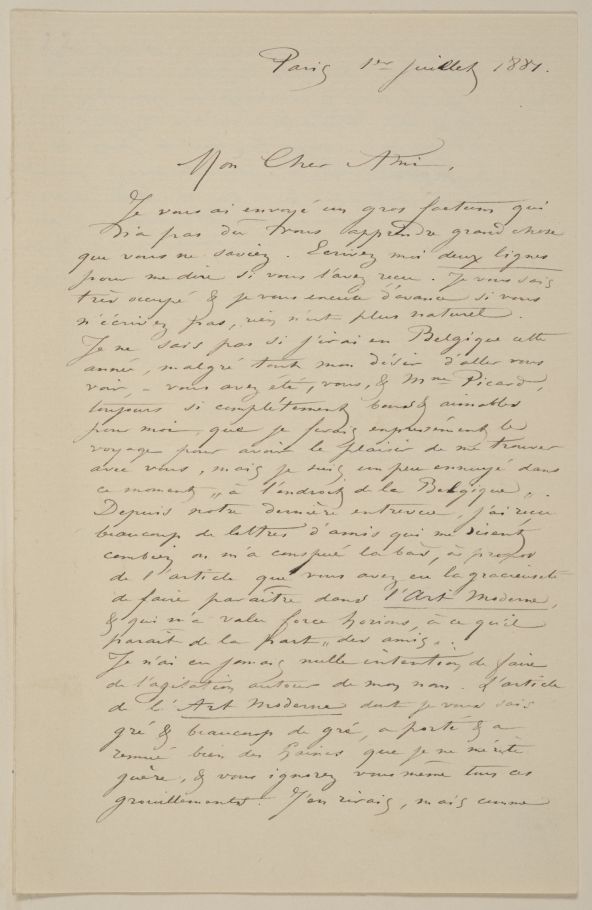 Paris 1er juillet 1887.
Mon Cher Ami,
Je vous ai envoyé un gros factum qui
n'a pas dû vous apprendre grand chose
que vous ne saviez. Ecrivez moi deux lignes
pour me dire si vous l'avez reçu. Je vous sais
très occupé & je vous excuse d'avance si vous
n'écrivez pas, rien n'est plus naturel.
Je ne sais pas si j'irai en Belgique cette
année, malgré tout mon désir d'aller vous
voir, – vous avez été, vous, & Mme Picard,
toujours si complètement bons & aimables
pour moi, que je ferais expressément le
voyage pour avoir le plaisir de me trouver
avec vous, mais je suis un peu ennuyé dans
ce moment „à l'endroit de la Belgique„.
Depuis notre dernière entrevue, j'ai reçu
beaucoup de lettres d'amis qui me disent
combien on m'a conspué là bas, à propos
de l'article que vous avez eu la gracieuseté
de faire paraître dans l'Art Moderne,
& qui m'a valu force horions, à ce qu'il
parait de la part „des amis„.
Je n'ai eu jamais nulle intention de faire
de l'agitation autour de mon nom. L'article
de l'Art Moderne dont je vous sais
gré & beaucoup de gré, a porté & a
remué bien des haines que je ne mérite
guère, & vous ignorez vous même tous ces
grouillements. J'en rirais, mais comme